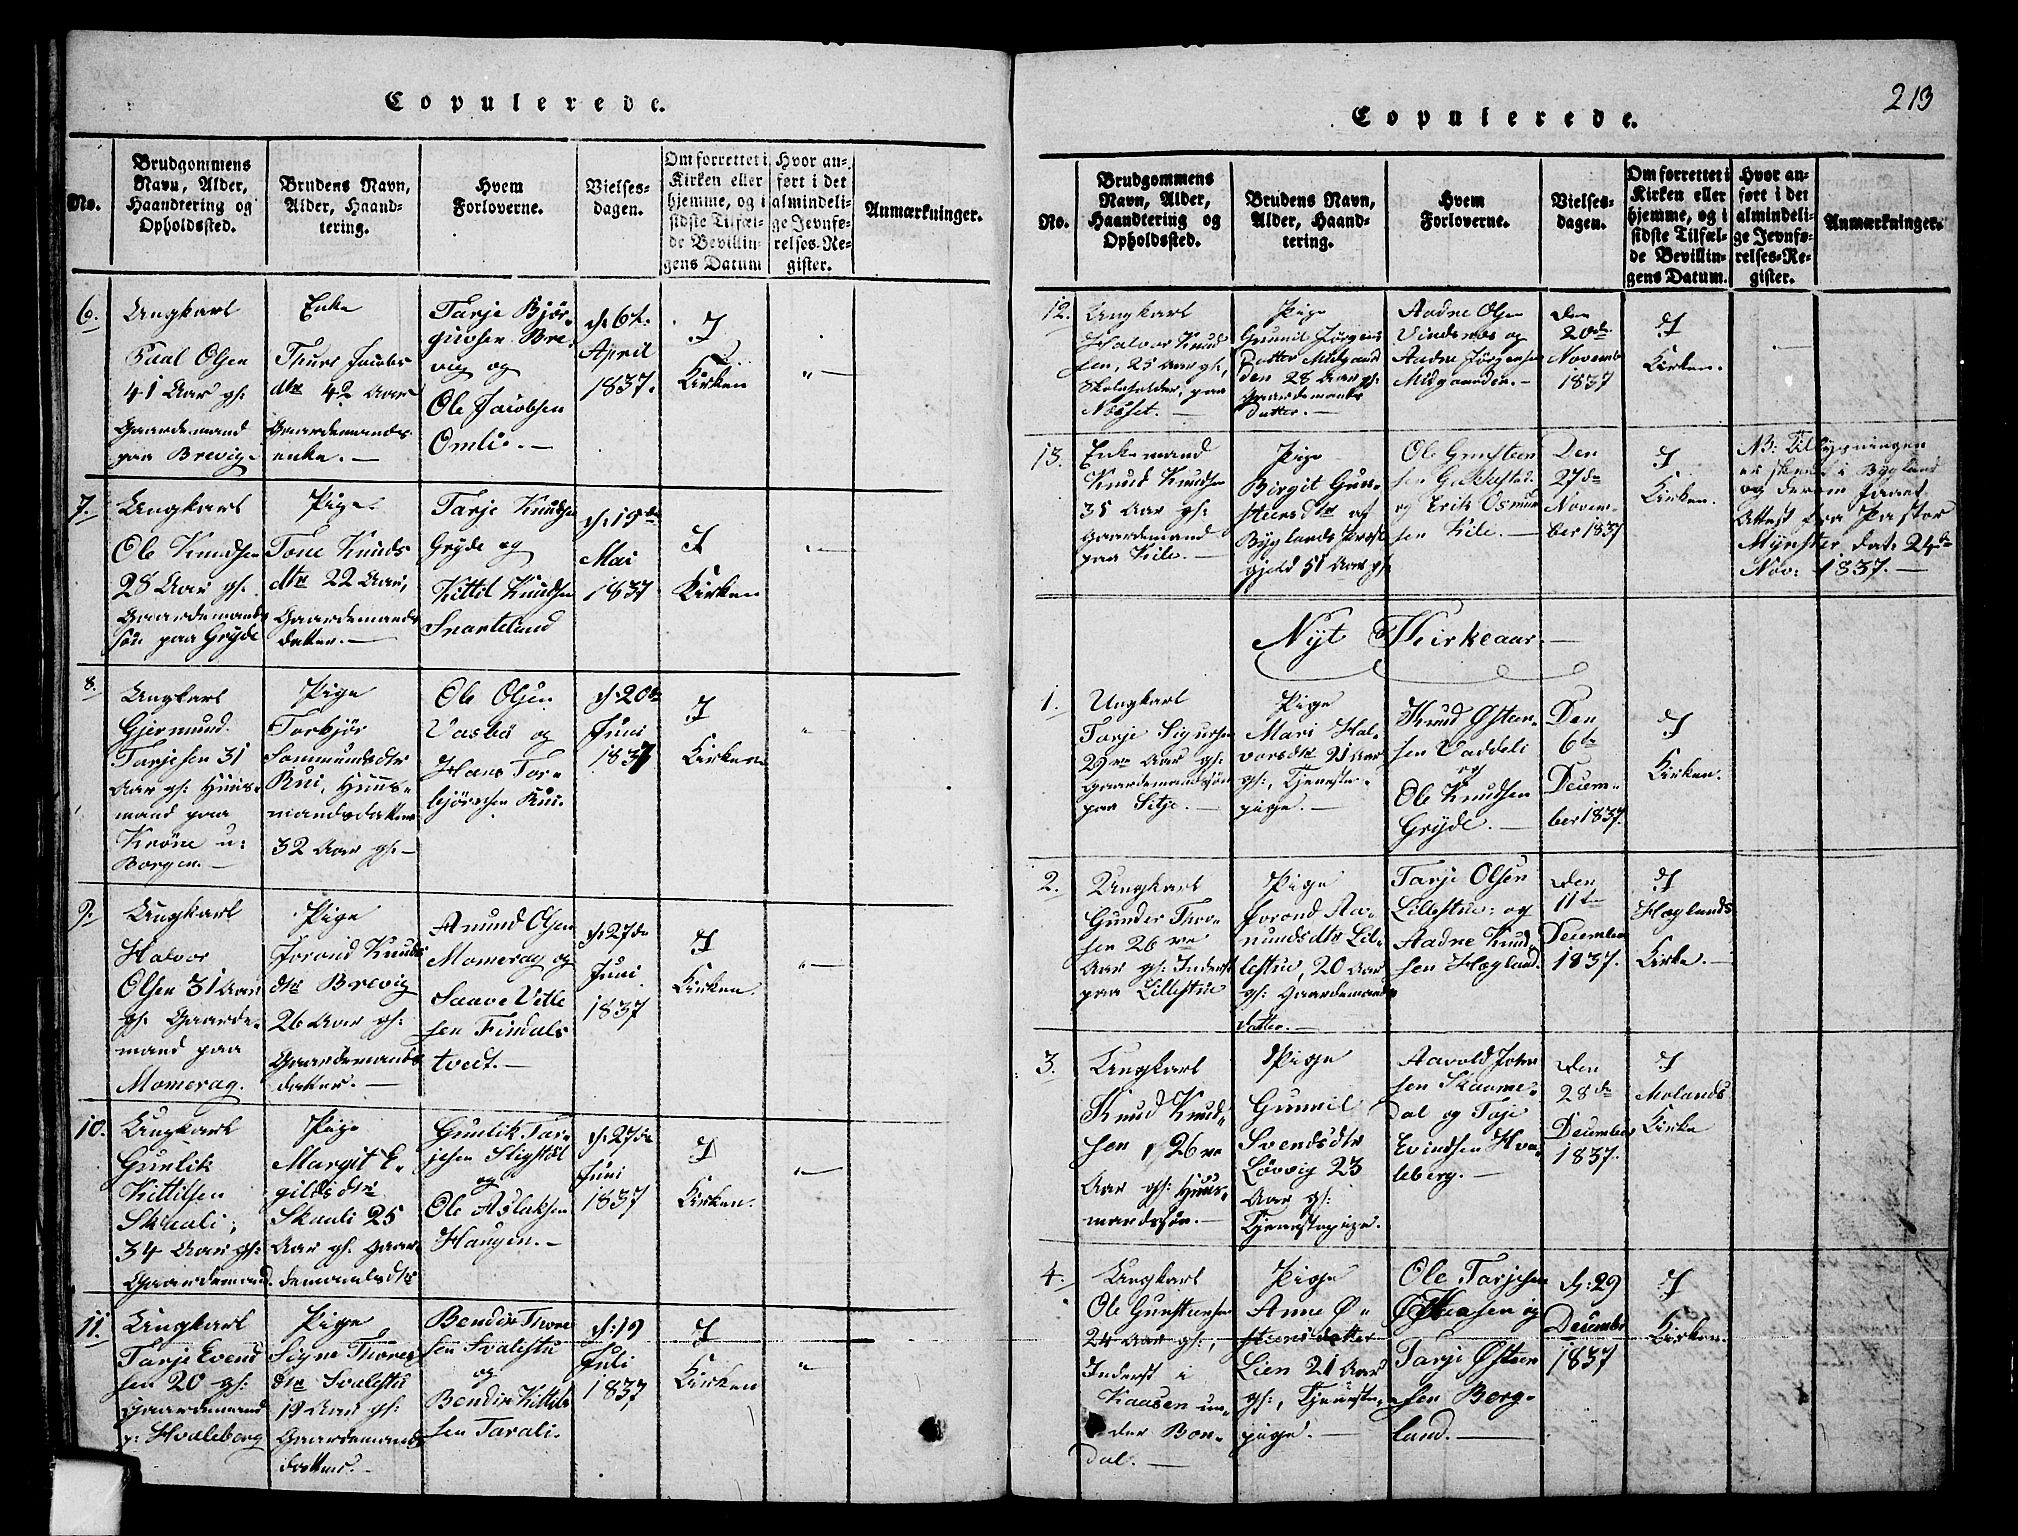 Copulerede.
No.
Brudgommens
Navn, Alder,
Haandtering og
Opholdssted.
Brudens Navn,
Alder, Haand-
tering.
Hvem
Forloverne.
Vielses-
dagen.
Om forrettet i
Kirken eller
hjemme, og i
sidste Tilfæl-
de Bevillin-
gens Datum
Hvor an-
ført i det
almindeli-
ge Jevnfø-
relses-Re-
gister.
Anmærkninger.
6.
Ungkarl
Paal Olsen
41 Aar gl:
Gaardemand
paa Brevig.
Enke
Thure Jacobs
dtr 42 Aar
Gaardemands
enke. —
Tarje Bjør-
guvsen Bre
vig og
Ole Jacobsen
Omli. —
d: 6t.
April
1837.
I
Kirken
"—
7.
Ungkarl
Ole Knudsen
28 Aar gl.
Gaardemands
søn paa Gryde
Pige
Tone Knuds
dtr 22 Aar,
Gaardemands
datter. —
Tarje Knudsen
Gryde og
Kittil Knudsen
Snarteland
d: 15de
Mai
1837
I
Kirken
"—
8.
Ungkarl
Gjermund
Tarjesen 31
Aar gl: Huus-
mand paa
Krone u:
Borgen. —
Pige
Torbjør
Sammundsdtr
Rui, Huus-
mandsdatter
32 Aar gl. —
Ole Olsen
Vasbø og
Hans Tor-
bjørnsen Rui.
d: 20de
Juni
1837
I
Kirken
"—
9.
Ungkarl
Halvor
Olsen 31 Aar
gl. Gaarde-
mand paa
Momerag.
Pige
Jorond Knuds
dtr Brevig
26 Aar gl:
Gaardemands
datter. —
Amund Olsen
Momerag og
Saave Vetle
sen Findals
tvedt. —
d: 27de
Juni
1837
I
Kirken.
"—
10.
Ungkarl
Gunlik
Kittilsen
Skauli,
34 Aar gl:
Gaardemand.
Pige
Margit E-
gildsdtr
Skauli 25
Aar gl. Gaar
demandsdtr
Gunlik Tar-
jesen Stigstøl
og
Ole Aslaksen
Haugen. —
d: 27de
Juni
1837
I
Kirken.
"—
11.
Ungkarl
Tarje Evend
sen 20 gl:
Gaardemand
p: Hvaleberg
Pige
Signe Thores
dtr Svalestu
19 Aar gl:
Gaardemands
datter. —
Bendix Thore
sen Svalestu
og
Bendix Kittils
sen Tarali.
d: 19
Juli
1837
I
Kirken
"—
213
Copulerede.
No.
Brudgommens
Navn, Alder,
Haandtering og
Opholdssted.
Brudens Navn,
Alder, Haand-
tering.
Hvem
Forloverne.
Vielses-
dagen.
Om forrettet i
Kirken eller
hjemme, og i
sidste Tilfæl-
de Bevillin-
gens Datum.
Hvor an-
ført i det
almindeli-
ge Jevnfø-
relses-Re-
gister.
Anmærkninger.
12.
Ungkarl
Halvor Knud
sen, 25 Aar gl.,
Skoleholder, paa
Næsset. —
Pige
Gunnil Jørgens
datter Midgaar
den 28 Aar gl:
Gaardemands
datter. —
Aadne Olsen
Vindsnæs og
Aadne Jørgensen
Midgaarden. —
Den
20de
Novemb
1837
I
Kirken.
—
13.
Enkemand
Knud Knudsen
35 Aar gl:
Gaardemand
paa Kile. —
Pige
Birgit Gun-
stensdtr af
Byglands Præste
gjeld 51 Aar gl.
Ole Gunsteen
sen
og Erik Osmun
sen Kile. —
Den
27de
Novem-
ber 1837
I
Kirken.
NB: Tillysningen
er skeed i Bygland
og derom faaet
Attest fra Pastor
Mynster dat: 24de
Nov: 1837. —
Nyt Kirkeaar. —
1.
Ungkarl
Tarje Sigursen
29 Aar gl:
Gaardemandssøn
paa Sitje. —
Pige
Mari Hal-
vorsdtr 21 Aar
gl:, Tjeneste-
pige. —
Knud Østen-
sen Vaddeli
og
Ole Knudsen
Gryde. —
Den
6te
Decem-
ber 1837.
I
Kirken.
2.
Ungkarl
Gunder Thor-
sen 26
Aar gl: Inderst
paa Lillestue
Pige
Jorond Aa-
nundsdtr Lil-
lestue, 20 Aar
gl: Gaardemands
datter. —
Tarje Olsen
Lillestue og
Aadne Knud-
sen Høgland.
Den
11te
December
1837.
I
Høglands
Kirke. —
3.
Ungkarl
Knud Knud-
sen, 26
Aar gl: Huus-
mandssøn. —
Pige
Gunvil
Svendsdtr
Løvvig 23
Aar gl:
Tjenestepige.
Aavold John
sen Skaamee-
dal og Taje
Evindsen Hva-
leberg. —
Den
28de
December
1837.
I
Molands
Kirke
4.
Ungkarl
Ole Gunstensen
24 Aar gl.,
Inderst i
Kaasen un-
der Bon-
dal. —
Pige
Anne Ø-
stensdatter
Lien 21 Aar
gl:, Tjeneste-
pige. —
Ole Tarjesen
Kaasen og
Tarje Østen
sen Berg-
land. —
d: 29
Decembr
1837
I
Kirken